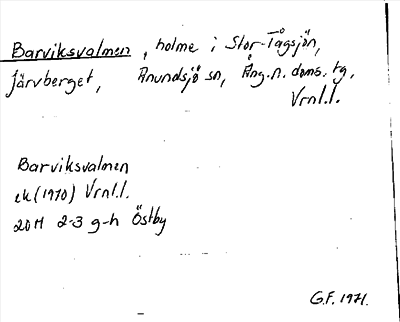 Barviksvalmen, holme i Stor-Tågsjön,
Järvberget, Anundsjö sn, Ång. n. doms. tg,
Vrnl.l.
Barviksvalmen
ek (1970) Vrnl.l.
20H 2-3 g-h Östby
G.F. 1971.